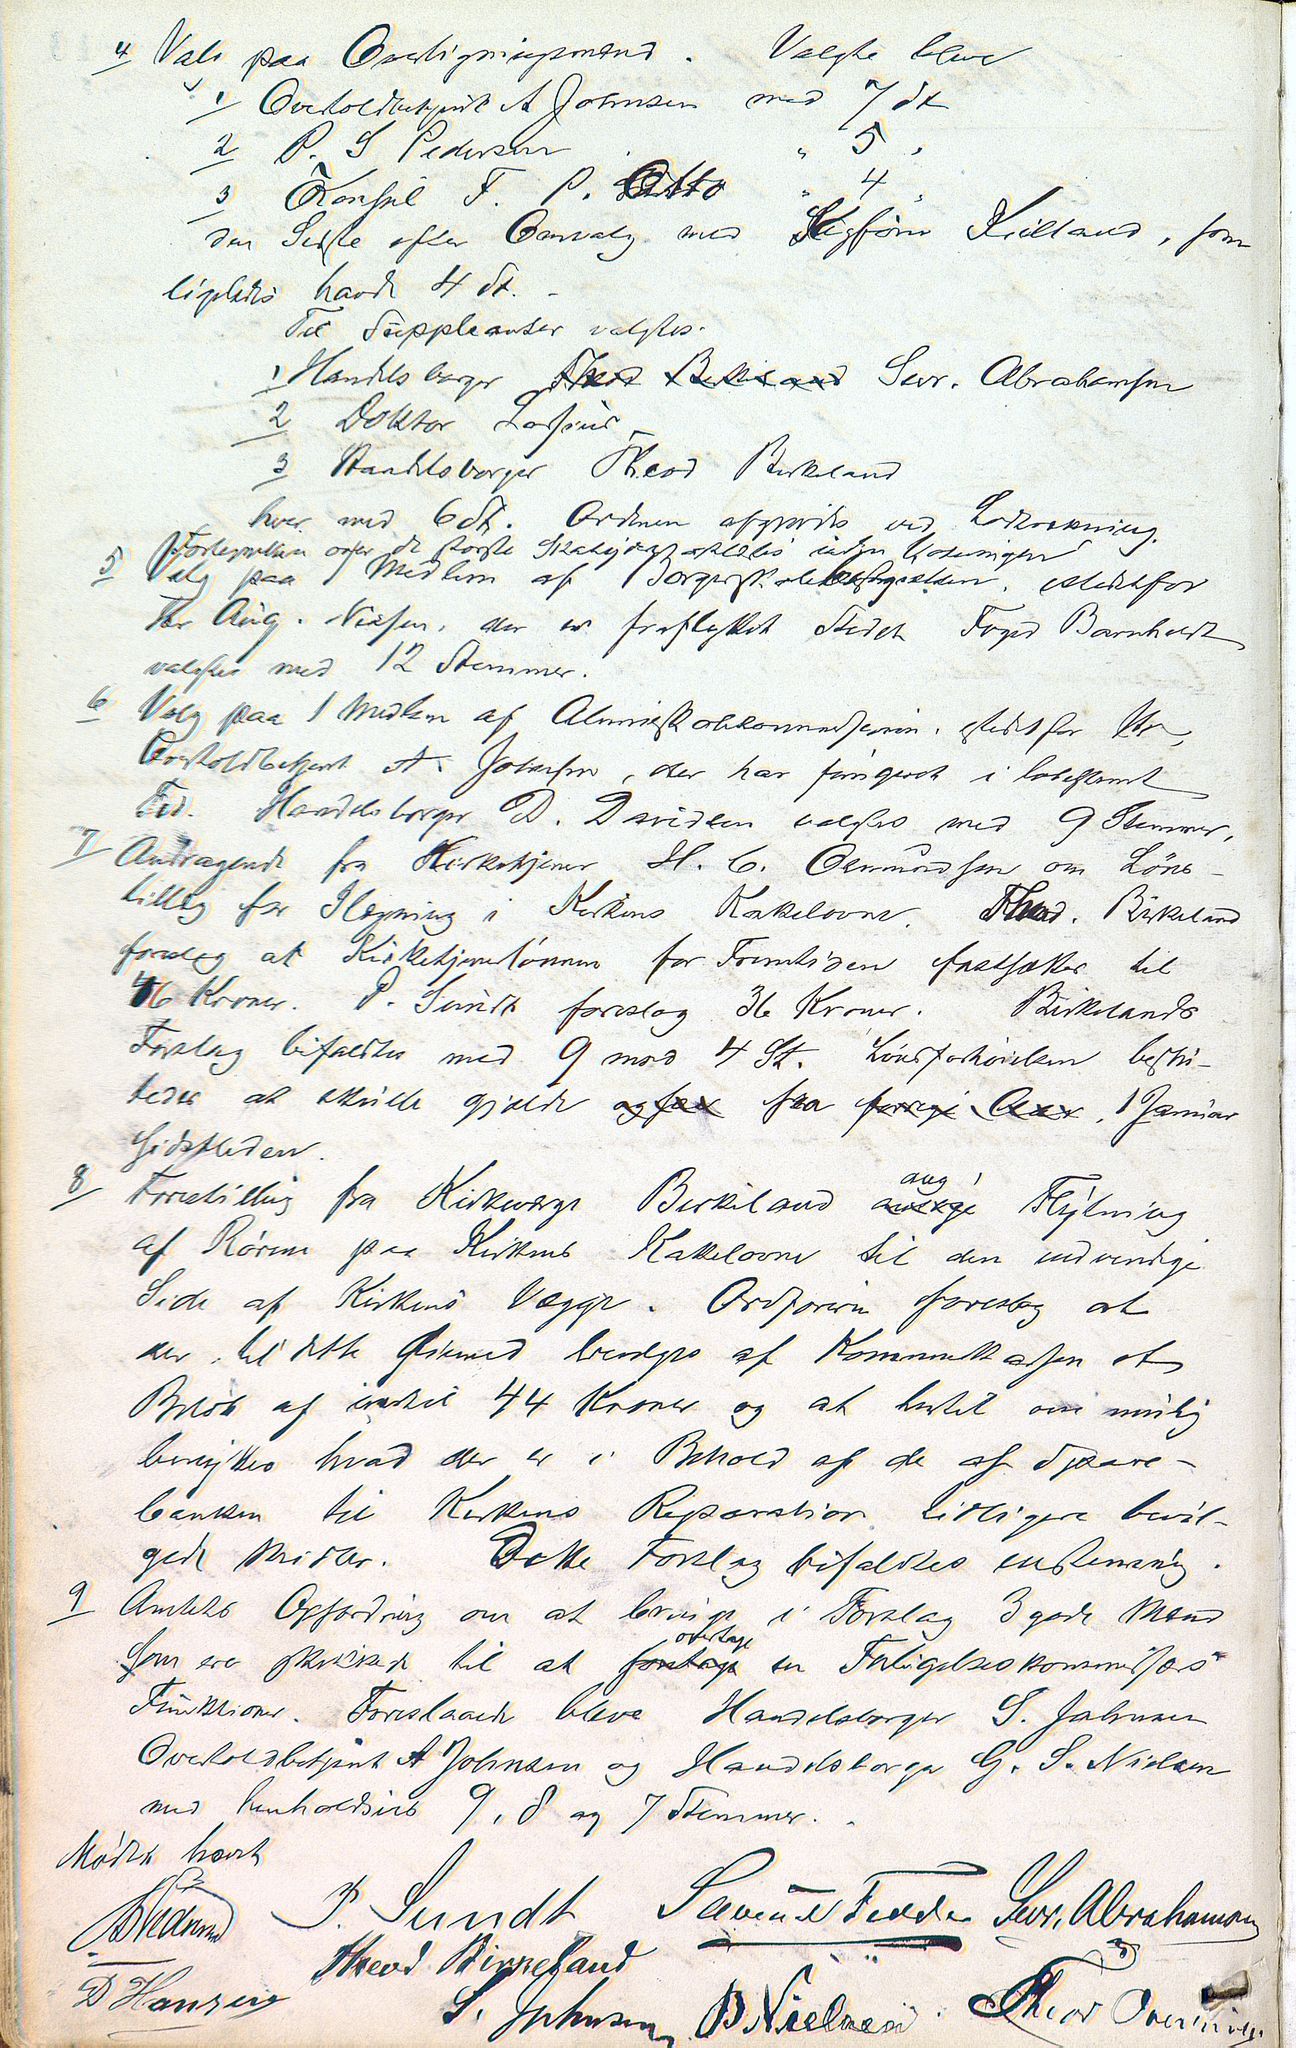 4 Valg paa Overligningsmænd. Valgte bleve
1 Overtoldbetjent A Johnsen med 7 St
2 P. S Pedersen " 5 "
3 Konsul F. P. Otto " 4 "
den Sidste efter Omvalg med Skibsfører Kielland, som
ligeledes havde 4 St. -
Til Suppleanter valgtes.
1 Handelsborger Theod Birkeland Sevr. Abrahamsen
2 Doktor
3 Handelsborger Theod Birkeland
hver med 6 St. Ordenen afgjordes ved Lodtrækning.
Fortegnelsen over de største
5 Valg paa 1 Medlem af Borgerskole istedetfor
Hr Aug. Nielsen, der er fraflyttet Stedet Foged Barnholdt
valgtes med 12 Stemmer.
6 Valg paa 1 Medlem af Almueskolekommissionen istedetfor Hr
Overtoldbetjent A. Johnsen, der har fungeret i lovbestemt
Tid. Handelsborger D. Davidsen valgtes med 9 Stemmer,
7 Andragende fra Kirketjener H. C. Osmundsen om Løns-
tillæg for Ilægning i Kirkens Kakelovne. Theod. Birkeland
foreslog at Kirketjenerlønnen for Fremtiden fastsættes til
46 Kroner. P. Sundt foreslog 36 Kroner. Birkelands
Forslag bifaldtes med 9 mod 4 St. Lønsforhøielsen beslut-
tedes at skulle gjælde og fra fra forrige Aar, 1 Januar
sidstleden.
8 Forestilling fra Kirkeverge Birkeland ang Flytning
af Rørene paa Kirkens Kakelovne til den indvendige
Side af Kirkens Vægge. Ordføreren foreslog at
der til dette Øiemed bevilges af Kommunekassen et
Beløb af indtil 44 Kroner og at hertil om mulig
benyttes hvad der er i Behold af de af Spare-
banken til Kirkens Reparation tidligere bevil-
gede Midler. Dette Forslag bifaldtes enstemmig.
9 Amtets Opfordring om at bringe i Forslag 3 gode Mænd
overtage
som ere skikkede til at foretage en Forligelseskommissærs
Funktioner. Foreslaaede bleve Handelsborger S. Johnsen
Overtoldbetjent A Johnsen og Handelsborger G. S. Nielsen
med henholdsvis 9, 8 og 7 Stemmer.
Mødet hævet
P. Sundt Samuel Fedde Sevr. Abrahamsen
Theod Birkeland
D Hansen S. Johnsen B Nielsen Theod